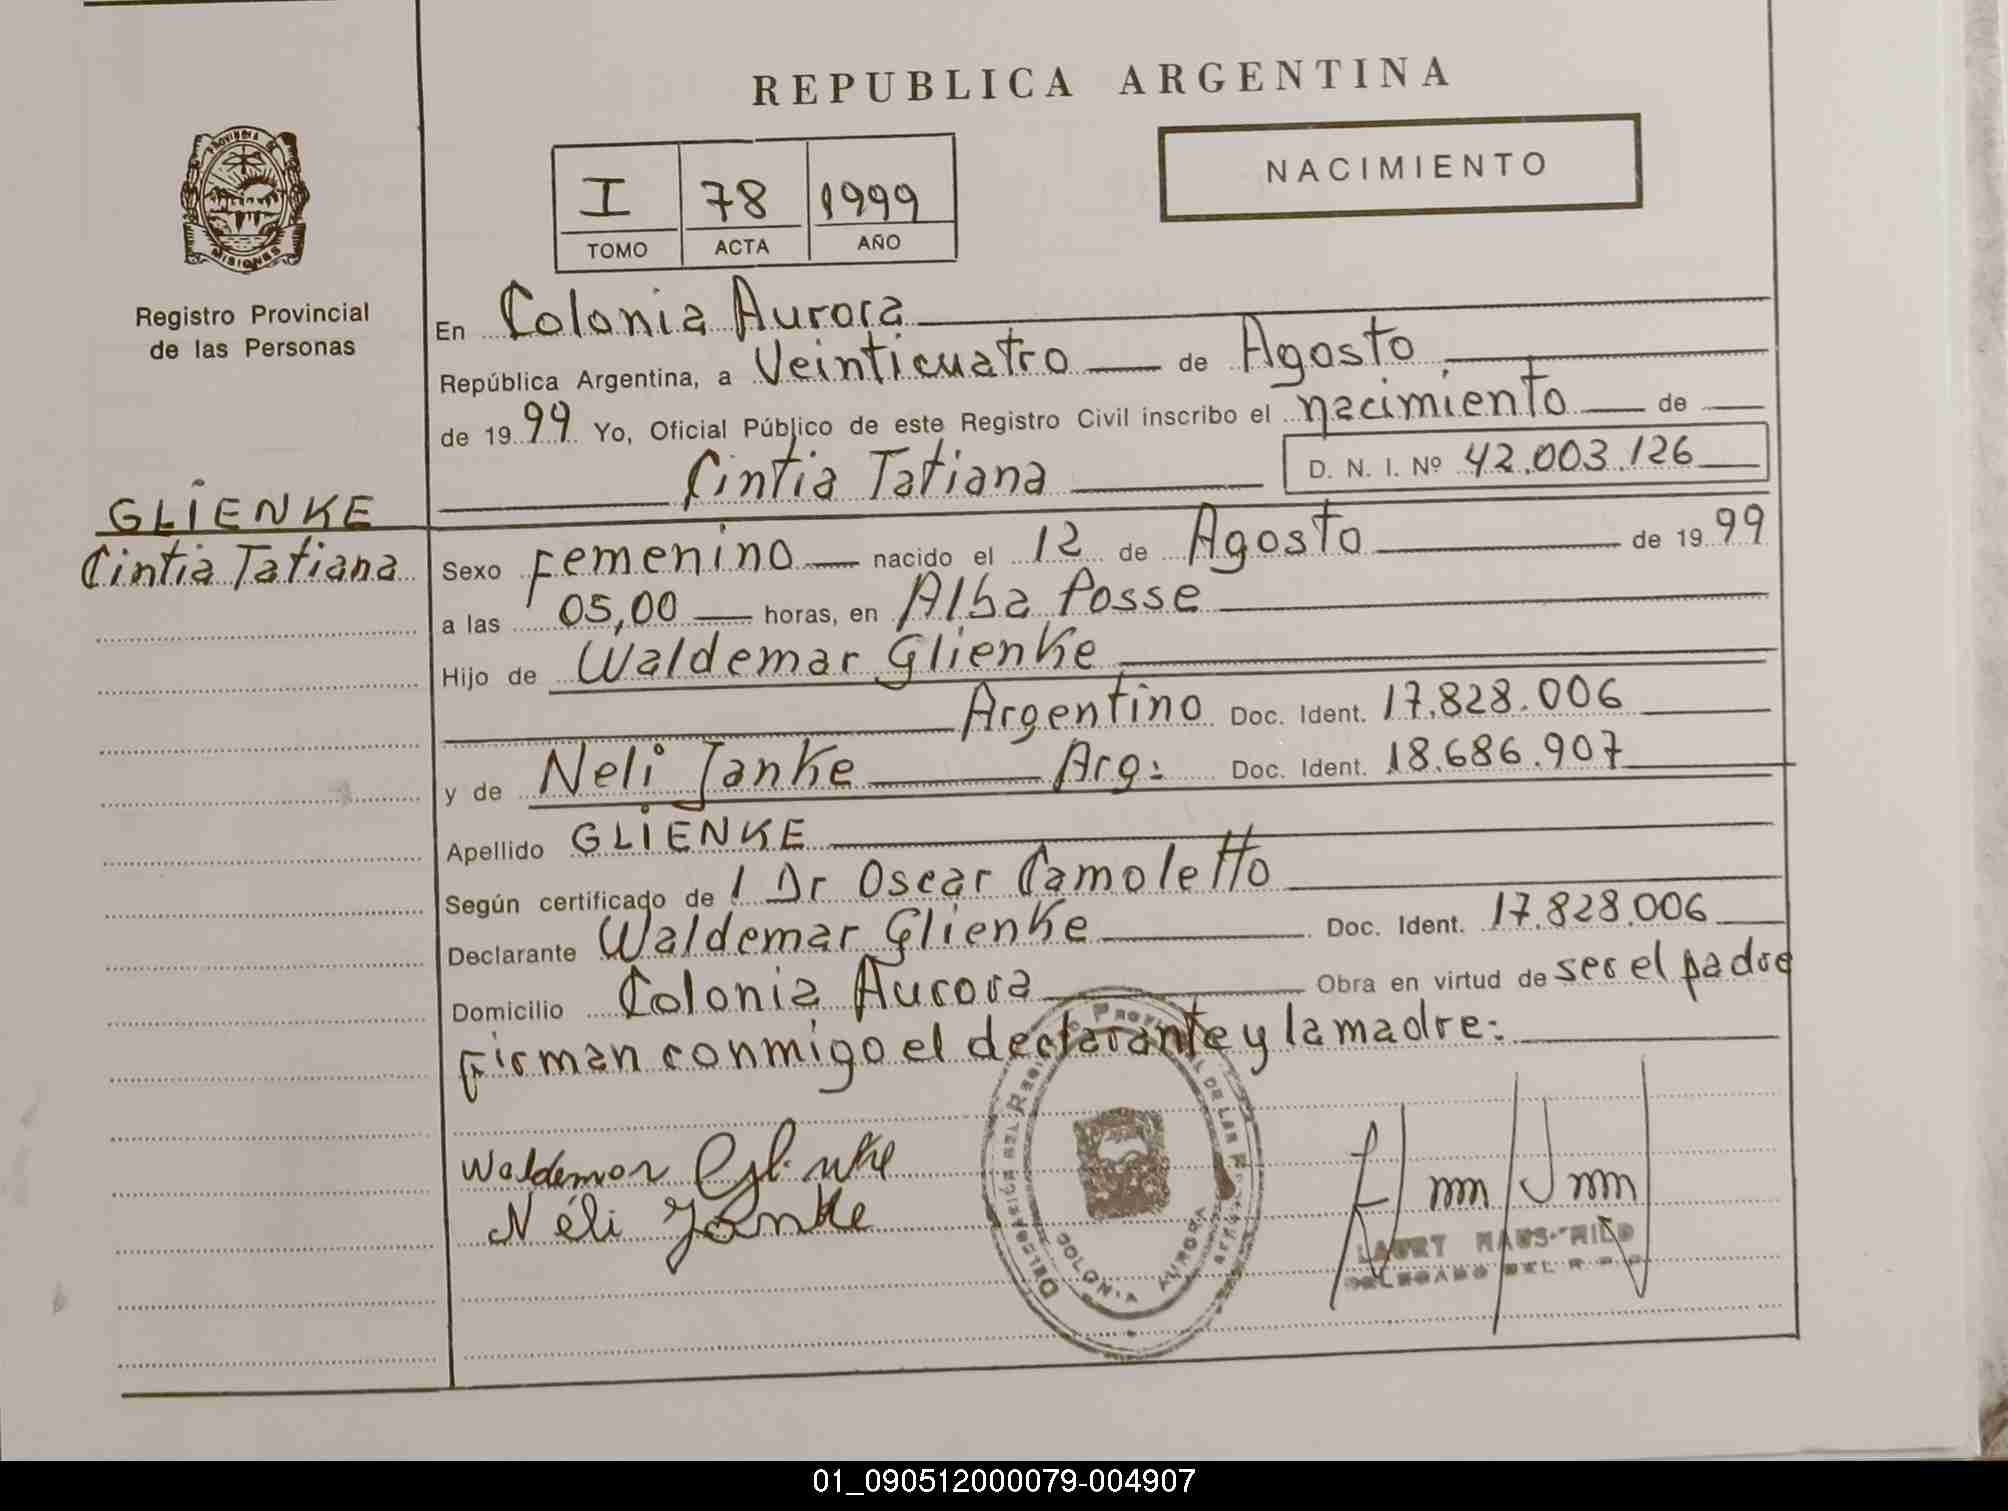 REPUBLICA ARGENTINA
PROVINCIA DE
MISIONES
Registro Provincial
de las Personas
NACIMIENTO
I 78 1999
TOMO ACTA AÑO
En Colonia Aurora
República Argentina, a Veinticuatro de Agosto
de 1999 Yo, Oficial Público de este Registro Civil inscribo el nacimiento de
Cintia Tatiana D. N. I. Nº 42.003.126
GLIENKE
Cintia Tatiana
Sexo Femenino nacido el 12 de Agosto de 1999
a las 05,00 horas, en Alba Posse
Hijo de Waldemar Glienke
Argentino Doc. Ident. 17.828.006
y de Neli Janke Arg: Doc. Ident. 18.686.907
Apellido GLIENKE
Según certificado de l Dr Oscar Camoletto
Declarante Waldemar Glienke Doc. Ident. 17.828.006
Domicilio Colonia Aurora Obra en virtud de ser el padre
Firman conmigo el declarante y la madre:
Waldemar Glienke
Néli Janke
COLONIA AURORA
DELEGADO DEL R.P.P.
01_090512000079-004907